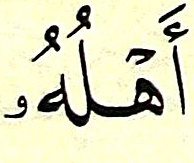 أَهۡلُهُۥ